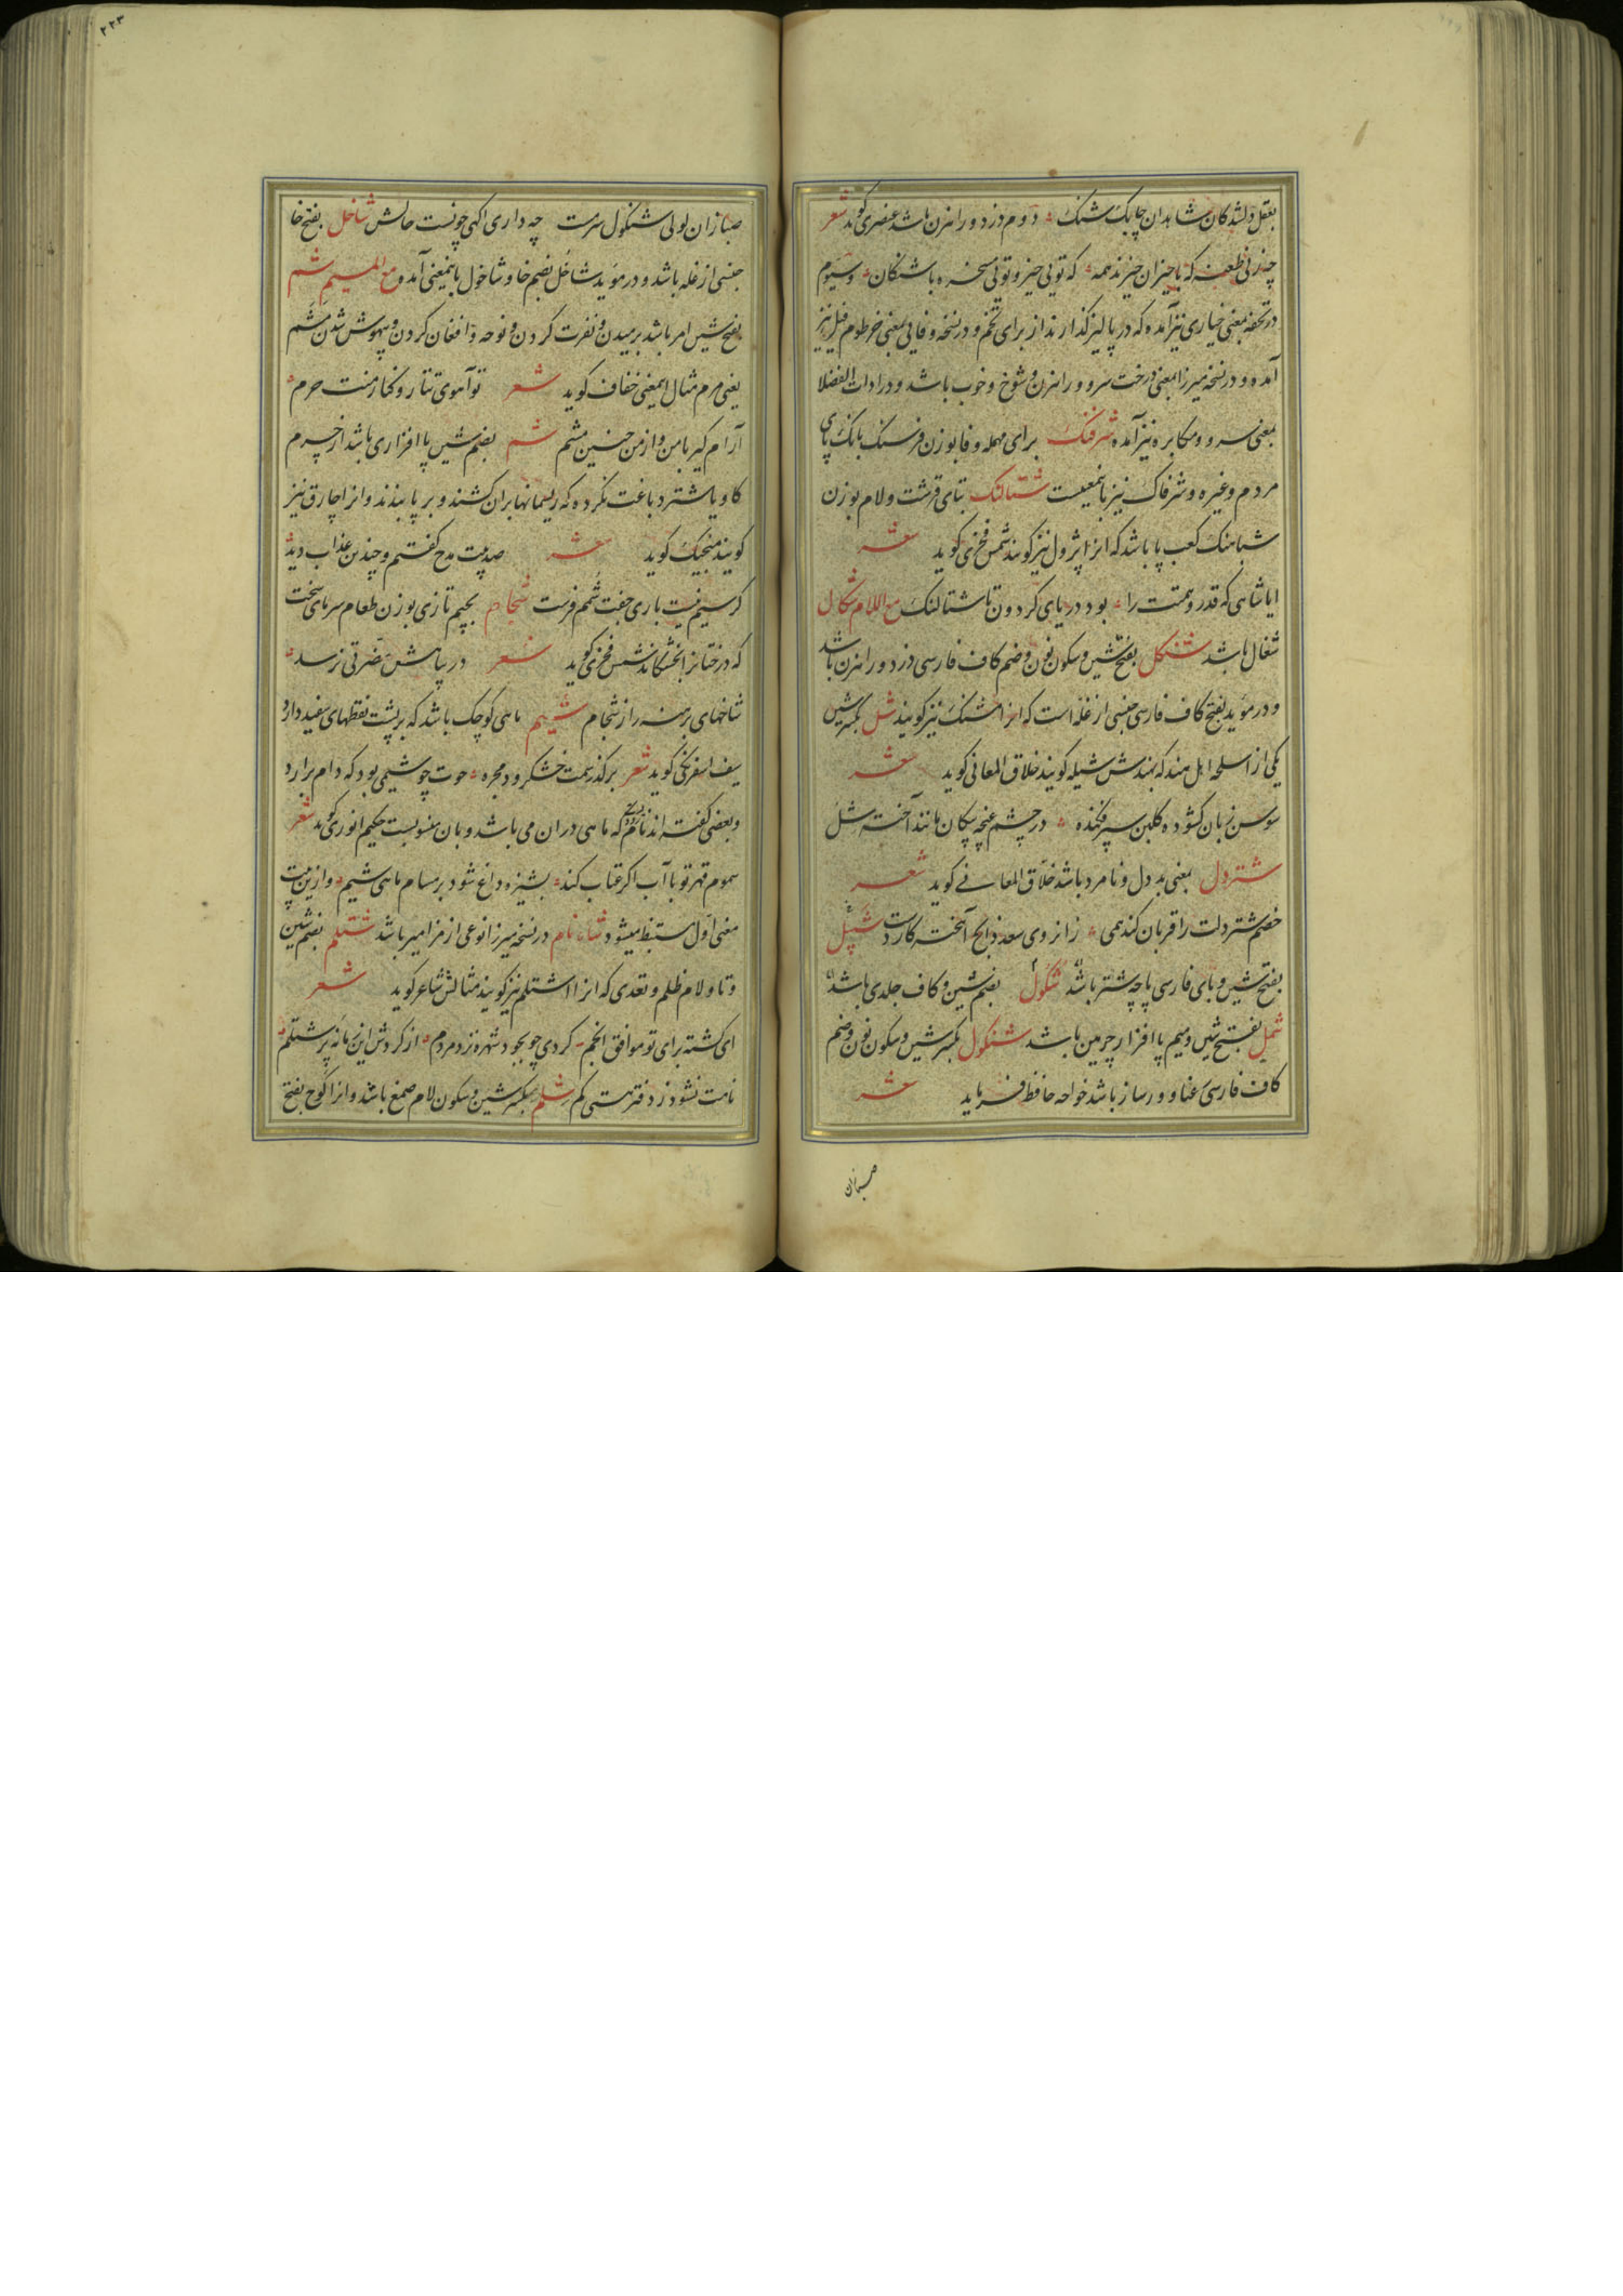 بعقل دلشدکان شاهدان چابک شنک دوم دزد و راهزن باشد عنصری کوید شعر
چه زنی طعنه که با حیزان حیزند همه که تویی حیز و تویی مسخره با شنکان و سیوم
در تحفه بمعنی خیاری نیز آمده که در پالیز کذارند از برای تخم و در نسخه وفایی بمعنی خرطوم فیل نیز
آمده و در نسخه میرزا بمعنی درخت سرو و راهزن و شوخ و خوب باشد و در ادات الفضلا
بمعنی سرو و مکابره نیز آمده شرفنک برای مهمله و فا بوزن فرسنک بانک پای
مردم و غیره و شرفاک نیز باینمعنیست شتالنک بتای قرشت و لام بوزن
شباهنک کعب پا باشد که انرا پژول نیز کویند شمس فخری کوید شعر
ایا شاهی که قدر و همتت را بود دریای کردون تا شتالنک مع اللام شکال
شغال باشد شنکل بفتح شین و سکون نون و ضم کاف فارسی دزد و راهزن باشد
و در مؤید بفتح کاف فارسی جنسی از غله است که انرا مشنک نیز کویند شل بکسر شین
یکی از اسلحه اهل هند که بهندش شیله کویند خلاق المعانی کوید شعر
سوسن زبان کشوده کلبن سپر فکنده در چشم غنچه پیکان مانند آخته شل
شتردل بمعنی بددل و نامرد باشد خلاق المعانی کوید شعر
خصم شتردلت را قربان کند همی زانروی سعد ذابح آهخته کاردست شپل
بفتح شین و بای فارسی پاچه شتر باشد شکول بضم شین و کاف جلدی باشد
شمل بفتح شین و میم پاافزار چرمین باشد شنکول بکسر شین و سکون نون و ضم
کاف فارسی رعنا و ورساز باشد خواجه حافظ فرماید شعر
صبا زان
۲۲۳
صبا زان لولی شنکول سرمست چه داری اکهی چونست حالش شاخل بفتح خا
جنسی از غله باشد و در مؤید شاخل بضم خا و شاخول باینمعنی آمد و مع المیم شم
بفتح شین امر باشد برمیدن و نفرت کردن و نوحه و افغان کردن و بیهوش شدن مشم
یعنی مرم مثال اینمعنی خفاف کوید شعر تو آهوی تتار و کنار منت حرم
آرام کیر با من و از من چنین مشم شم بضم شین پاافزاری باشد از چرم
کاو یا شتر دباغت نکرده که ریسمانها بران کشند و بر پا بندند و انرا چارق نیز
کویند منجیک کوید شعر صد بیت مدح کفتم و چندین عذاب دید
کر سیم نیست باری جفت شمم فرست شجام بجیم تازی بوزن طعام سرمای سخت
که درختانرا بخشکاند شمس فخری کوید شعر در پناهش مضرتی نرسد
شاخهای برهنه را ز شجام شیم ماهی کوچک باشد که بر پشت نقطهای سفید دارد
سیف اسفرنکی کوید شعر بر کذر همت خشک رود مجره حوت چو شیمی بود که دام برارد
و بعضی کفته اند نام رودیست که ماهی دران می باشد و بان منسوبست حکیم انوری کوید شعر
سموم قهر تو با آب اکر عتاب کند بشیزه داغ شود بر مسام ماهی شیم و ازین بیت
معنی اول مستنبط میشود شاه نام در نسخه میرزا نوعی از مزامیر باشد شتلم بضم شین
و تا و لام ظلم و تعدی که انرا اشتلم نیز کویند مثالش شاعر کوید شعر
ای کشته برای تو موافق انجم کردی چو بجود شهره نزد مردم از کردش این زمانه پر شتلم
نامت نشود ز دفتر هستی کم شلم بکسر شین و سکون لام صمغ باشد و انرا کوج بفتح